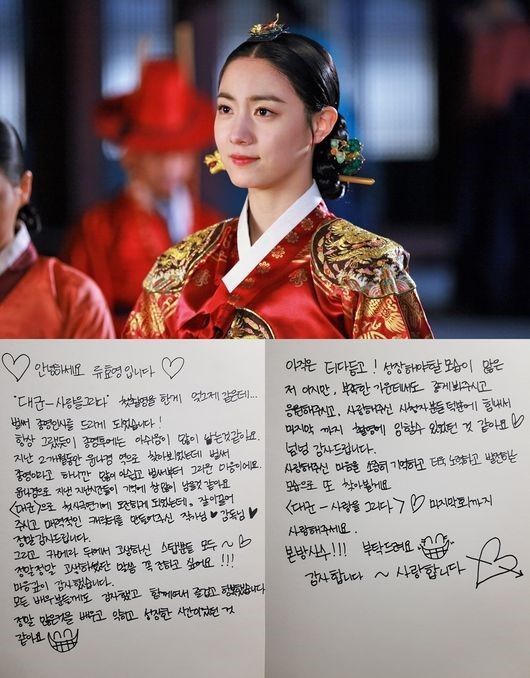 안녕하세요 류효영입니다
"대군-사랑을그리다" 첫촬영을 한게 엊그제 같은데...
벌써 종영인사를 드리게 되었습니다!
항상 그랬듯이 종영후에는 아쉬움이 많이 남는것같아요.
지난 2개월동안 윤나겸 역으로 찾아뵈었는데 벌써
종영이라고 하니깐 많이 아쉽고 벌써부터 그리운 마음이에요.
윤나겸으로 지낸 지난시간들이 기억에 참 많이 남을것 같아요
<대군>으로 첫사극연기에 도전하게 되었는데, 잘 이끌어
주시고 매력적인 캐릭터를 만들어주신 작가님 감독님
정말 감사드립니다.
그리고 카메라 뒤에서 고생하신 스탭분들 모두 ~
정말정말 고생하셨단 말씀 꼭 전하고 싶어요!!!
마음깊이 감사했습니다.
모든 배우분들께도 감사했고 함께여서 즐겁고 행복했습니다
정말 많은것을 배우고 익히고 성장한 시간이었던 것
같아요
아직은 더다듬고! 성장해야할 모습이 많은
저 이지만, 부족한 가운데서도 좋게봐주시고
응원해주시고, 사랑해주신 시청자분들 덕분에 힘내서
마지막 까지 촬영에 임할수 있었던 것 같아요
넘넘 감사드립니다.
사랑해주신 마음들 소중히 기억하고 더욱 노력하고 발전하는
모습으로 또 찾아뵐게요.
<대군-사랑을 그리다> 마지막회까지
사랑해주세요.
본방사수!!! 부탁드려요
감사합니다 ~ 사랑합니다